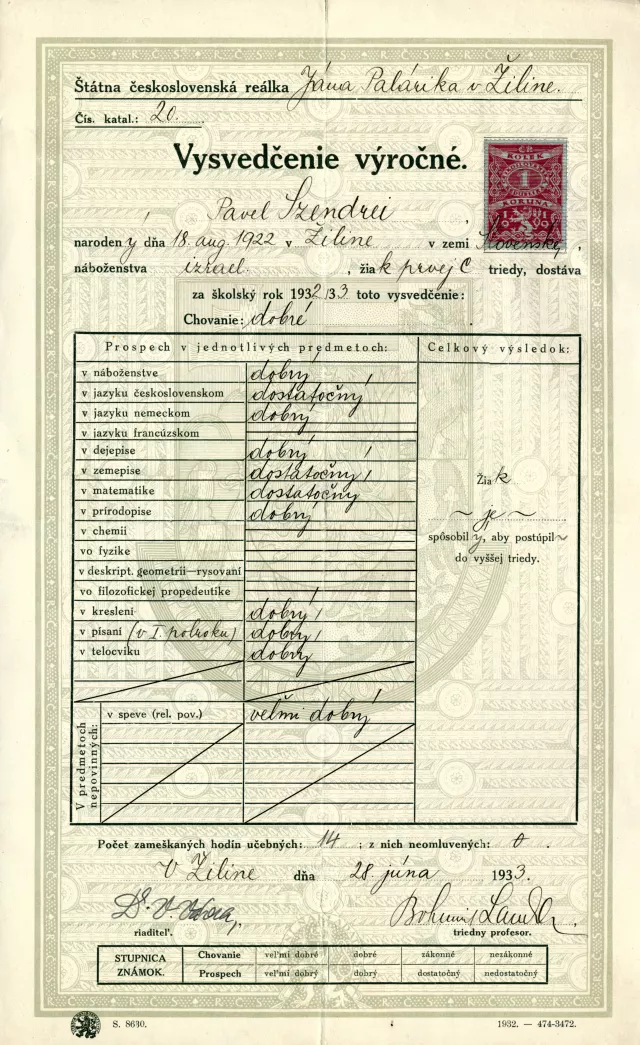 Štátna československá reálka Jána Palárika v Žiline.
Čís. katal.: 20.
Vysvedčenie výročné.
ČS
KOLEK
1
KORUNA
Pavel Szendrei,
narodený dňa 18. aug. 1922 v Žiline v zemi Slovenskej,
náboženstva izrael., žiak prvej C triedy, dostáva
za školský rok 1932/33 toto vysvedčenie:
Chovanie: dobré
Prospech v jednotlivých predmetoch: Celkový výsledok:
v náboženstve dobrý
v jazyku československom dostatočný
v jazyku nemeckom dobrý
v jazyku francúzskom
v dejepise dobrý
v zemepise dostatočný
v matematike dostatočný
v prírodopise dobrý
v chemii
vo fyzike
v deskript. geometrii—rysovaní
vo filozofickej propedeutike
v kreslení dobrý
v písaní (v I. polroku) dobrý
v telocviku dobrý
Žiak
~ je ~
spôsobilý, aby postúpil
do vyššej triedy.
V predmetoch nepovinných:
v speve (rel. pov.) veľmi dobrý
Počet zameškaných hodín učebných: 14 ; z nich neomluvených: 0.
V Žiline dňa 28. júna 1933.
riaditeľ. triedny profesor.
STUPNICA ZNÁMOK.
Chovanie veľmi dobré dobré zákonné nezákonné
Prospech veľmi dobrý dobrý dostatočný nedostatočný
S. 8630. 1932. — 474-3472.